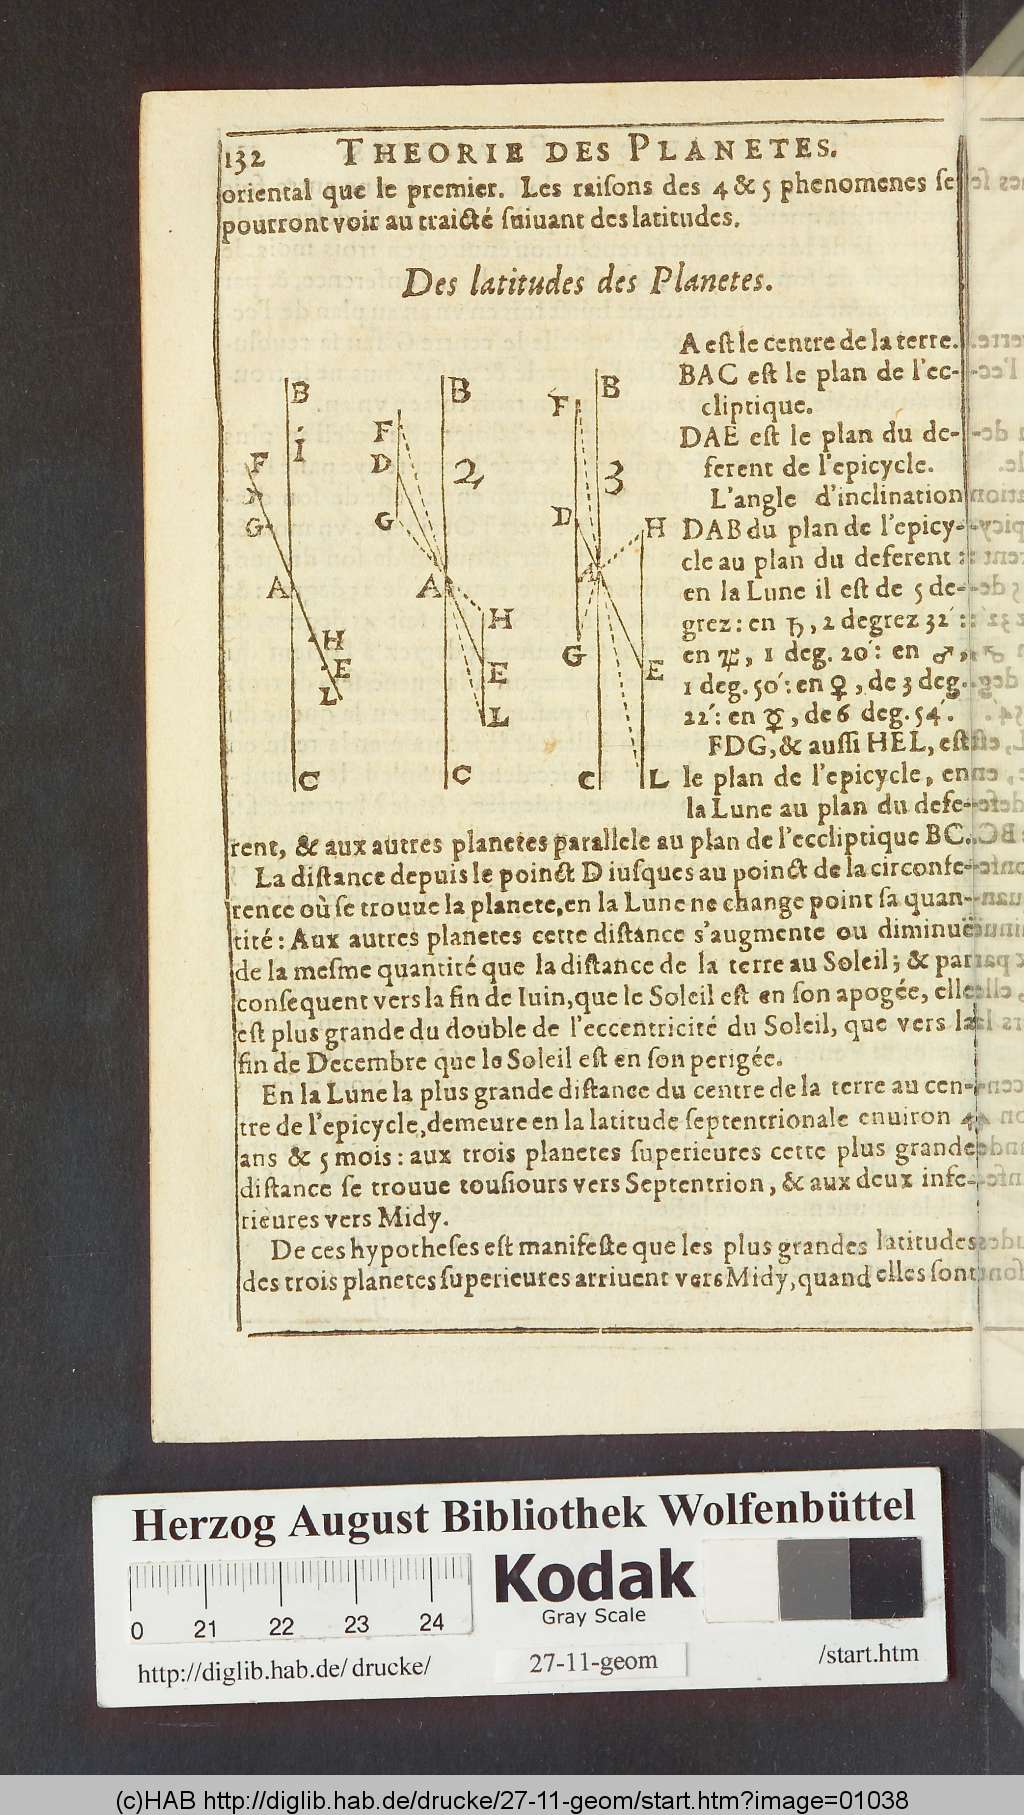 132 THEORIE DES PLANETES.
oriental que le premier. Les raiſons des 4 & 5 phenomenes ſe
pourront voir au traicté ſuiuant des latitudes.
Des latitudes des Planetes.
A eſt le centre de la terre.
BAC eſt le plan de l'ec-
cliptique.
DAE eſt le plan du de-
ferent de l'epicycle.
L'angle d'inclination
DAB du plan de l'epicy-
cle au plan du deferent:
en la Lune il eſt de 5 de-
grez: en ♄, 2 degrez 32´:
en ♃, 1 deg. 20´: en ♂,
1 deg. 50´: en ♀, de 3 deg.
22´: en ☿, de 6 deg. 54´.
FDG, & auſſi HEL, eſt
le plan de l'epicycle, en
la Lune au plan du defe-
B
1
F
G
A
H
E
L
C
B
F
D
2
G
A
H
E
L
C
B
F
3
D
H
A
G
E
C
L
rent, & aux autres planetes parallele au plan de l'eccliptique BC.
La diſtance depuis le poinct D iuſques au poinct de la circonfe-
rence où ſe trouue la planete, en la Lune ne change point ſa quan-
tité: Aux autres planetes cette diſtance s'augmente ou diminuë
de la meſme quantité que la diſtance de la terre au Soleil; & par
conſequent vers la fin de Iuin, que le Soleil eſt en ſon apogée, elle
eſt plus grande du double de l'eccentricité du Soleil, que vers la
fin de Decembre que le Soleil eſt en ſon perigée.
En la Lune la plus grande diſtance du centre de la terre au cen-
tre de l'epicycle, demeure en la latitude ſeptentrionale enuiron 4
ans & 5 mois: aux trois planetes ſuperieures cette plus grande
diſtance ſe trouue touſiours vers Septentrion, & aux deux infe-
rieures vers Midy.
De ces hypotheſes eſt manifeſte que les plus grandes latitudes
des trois planetes ſuperieures arriuent vers Midy, quand elles ſont
Herzog August Bibliothek Wolfenbüttel
Kodak
Gray Scale
0 21 22 23 24
http://diglib.hab.de/drucke/ 27-11-geom /start.htm
(c)HAB http://diglib.hab.de/drucke/27-11-geom/start.htm?image=01038